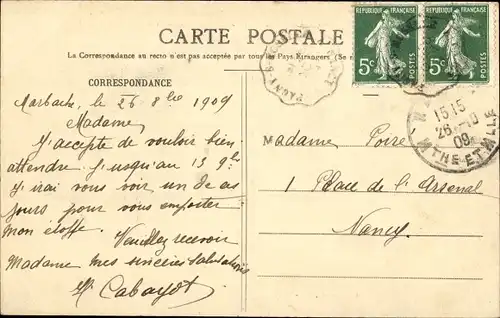 CARTE POSTALE
La Correspondance au recto n'est pas acceptée par tous les Pays Étrangers. (Se
RÉPUBLIQUE FRANÇAISE
5c
RÉPUBLIQUE FRANÇAISE
5c
PAGNY
15 15
26 -10
09
MTHE-ET-MLLE
CORRESPONDANCE
Marbache, le 26 8bre 1909
Madame,
J'accepte de vouloir bien
attendre jusqu'au 15 9bre
J'irai vous voir un de ces
jours pour vous emporter
mon étoffe.
Veuillez recevoir
Madame mes sincères salutations
Cabayot
Madame Poiré
1 Place de l'Arsenal
Nancy